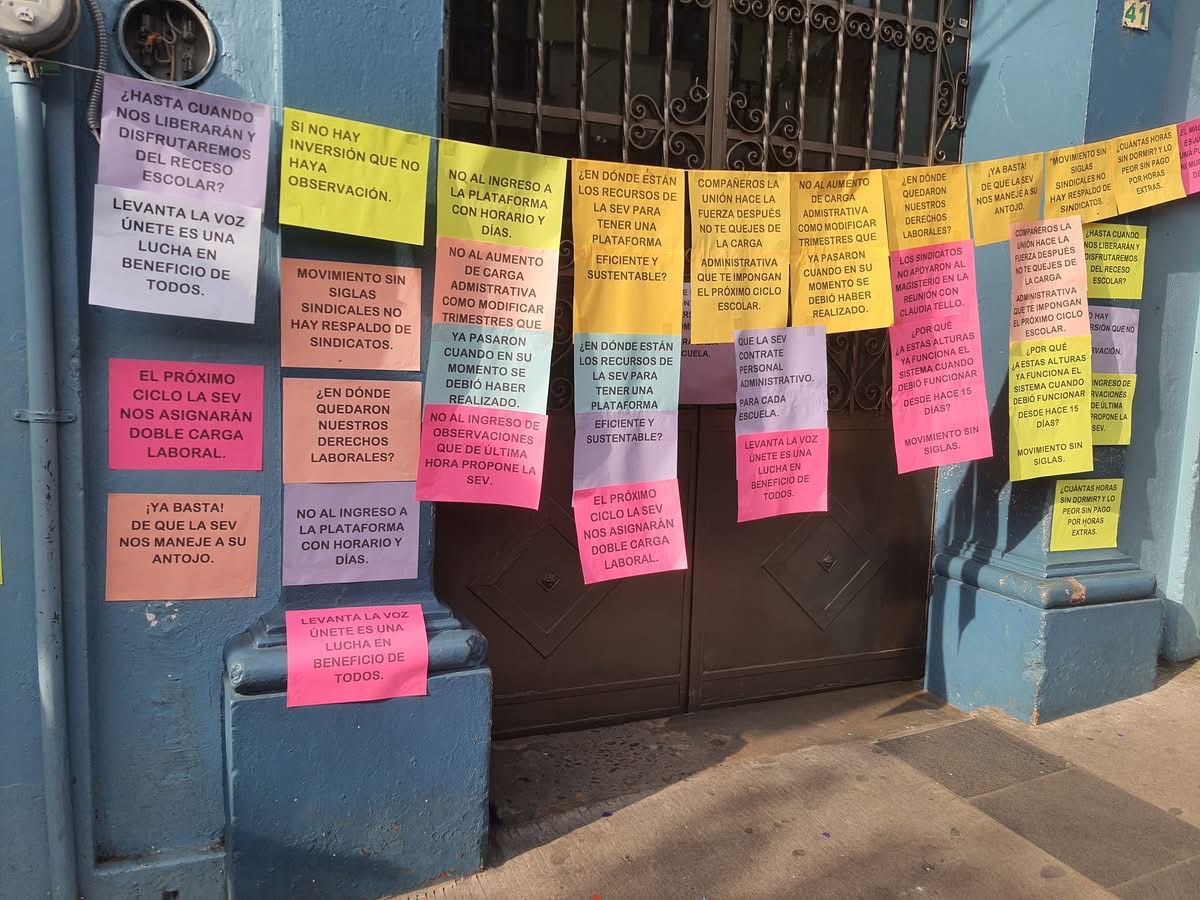 ¿HASTA CUANDO
NOS LIBERARÁN Y
DISFRUTAREMOS
DEL RECESO
ESCOLAR?
LEVANTA LA VOZ
ÚNETE ES UNA
LUCHA EN
BENEFICIO DE
TODOS.
EL PRÓXIMO
CICLO LA SEV
NOS ASIGNARÁN
DOBLE CARGA
LABORAL.
¡YA BASTA!
DE QUE LA SEV
NOS MANEJE A SU
ANTOJO.
SI NO HAY
INVERSIÓN QUE NO
HAYA
OBSERVACIÓN.
MOVIMIENTO SIN
SIGLAS
SINDICALES NO
HAY RESPALDO DE
SINDICATOS.
¿EN DÓNDE
QUEDARON
NUESTROS
DERECHOS
LABORALES?
NO AL INGRESO A
LA PLATAFORMA
CON HORARIO Y
DÍAS.
LEVANTA LA VOZ
ÚNETE ES UNA
LUCHA EN
BENEFICIO DE
TODOS.
NO AL INGRESO A
LA PLATAFORMA
CON HORARIO Y
DÍAS.
NO AL AUMENTO
DE CARGA
ADMISTRATIVA
COMO MODIFICAR
TRIMESTRES QUE
YA PASARON
CUANDO EN SU
MOMENTO SE
DEBIÓ HABER
REALIZADO.
NO AL INGRESO DE
OBSERVACIONES
QUE DE ÚLTIMA
HORA PROPONE LA
SEV.
¿EN DÓNDE ESTÁN
LOS RECURSOS DE
LA SEV PARA
TENER UNA
PLATAFORMA
EFICIENTE Y
SUSTENTABLE?
¿EN DÓNDE ESTÁN
LOS RECURSOS DE
LA SEV PARA
TENER UNA
PLATAFORMA
EFICIENTE Y
SUSTENTABLE?
EL PRÓXIMO
CICLO LA SEV
NOS ASIGNARÁN
DOBLE CARGA
LABORAL.
COMPAÑEROS LA
UNIÓN HACE LA
FUERZA DESPUÉS
NO TE QUEJES DE
LA CARGA
ADMINISTRATIVA
QUE TE IMPONGAN
EL PRÓXIMO CICLO
ESCOLAR.
QUE LA SEV
CONTRATE
PERSONAL
ADMINISTRATIVO.
PARA CADA
ESCUELA.
LEVANTA LA VOZ
ÚNETE ES UNA
LUCHA EN
BENEFICIO DE
TODOS.
NO AL AUMENTO
DE CARGA
ADMISTRATIVA
COMO MODIFICAR
TRIMESTRES QUE
YA PASARON
CUANDO EN SU
MOMENTO SE
DEBIÓ HABER
REALIZADO.
¿EN DÓNDO
QUEDARON
NUESTROS
DERECHOS
LABORALES?
LOS SINDICATOS
NO APOYARON AL
MAGISTERIO EN LA
REUNIÓN CON
CLAUDIA TELLO.
¿POR QUÉ
¿A ESTAS ALTURAS
YA FUNCIONA EL
SISTEMA CUANDO
DEBIÓ FUNCIONAR
DESDE HACE 15
DÍAS?
MOVIMIENTO SIN
SIGLAS.
¡YA BASTA!
DE QUE LA SEV
NOS MANEJE A SU
ANTOJO.
COMPAÑEROS LA
UNIÓN HACE LA
FUERZA DESPUÉS
NO TE QUEJES DE
LA CARGA
ADMINISTRATIVA
QUE TE IMPONGAN
EL PRÓXIMO CICLO
ESCOLAR.
¿POR QUÉ
¿A ESTAS ALTURAS
YA FUNCIONA EL
SISTEMA CUANDO
DEBIÓ FUNCIONAR
DESDE HACE 15
DÍAS?
MOVIMIENTO SIN
SIGLAS.
MOVIMIENTO SIN
SIGLAS
SINDICALES NO
HAY RESPALDO DE
SINDICATOS.
¿CUÁNTAS HORAS
SIN DORMIR? Y LO
PEOR SIN PAGO
POR HORAS
EXTRAS.
¿HASTA CUANDO
NOS LIBERARÁN Y
DISFRUTAREMOS
DEL RECESO
ESCOLAR?
HAY
QUE NO
¿CUÁNTAS HORAS
SIN DORMIR? Y LO
PEOR SIN PAGO
POR HORAS
EXTRAS.
41